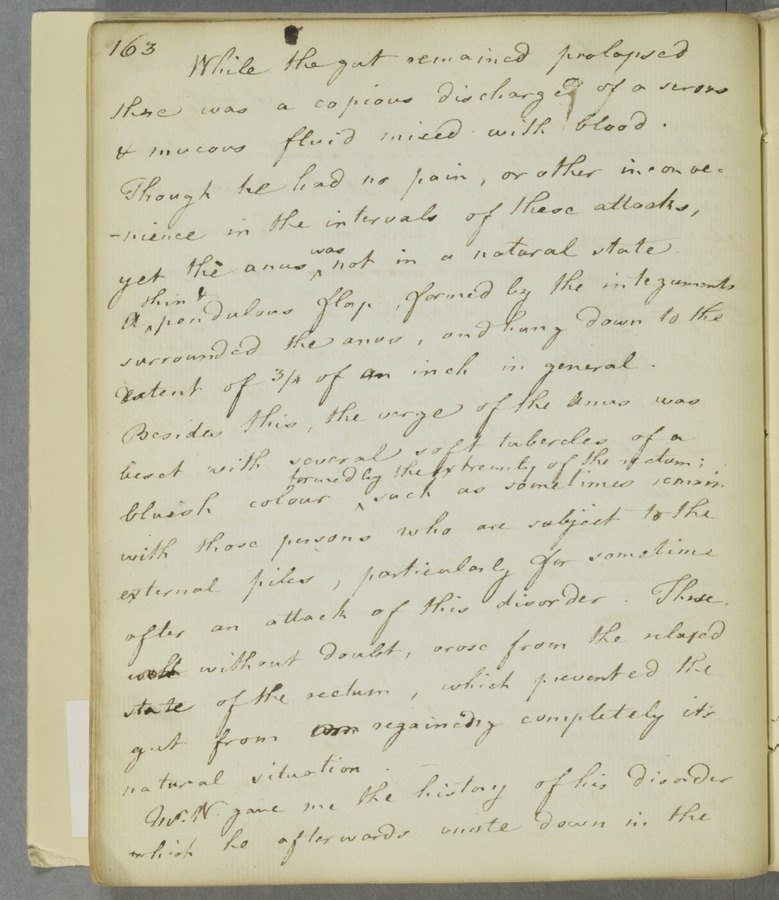 163
While the gut remained prolapsed
there was a copious discharge of a serous
& mucous fluid mixed with blood.
Though he had no pain, or other inconve=
-nience in the intervals of these attacks,
was
yet the anus ^ not in a natural state
thin &
A ^ pendulous flap, formed by the integuments
surrounded the anus, and hung down to the
extent of 3/4 of an inch in general.
Besides this, the verge of the Anus was
beset with several soft tubercles of a
formed by the extremity of the rectum;
bluish colour ^ such as sometimes remain
with those persons who are subject to the
external piles, particularly for sometime
after an attack of this disorder. These
without doubt, arose from the relaxed
state of the rectum, which prevented the
gut from regaining completely it's
natural situation.
Mr. W. gave me the history of his disorder
which he afterwards wrote down in the